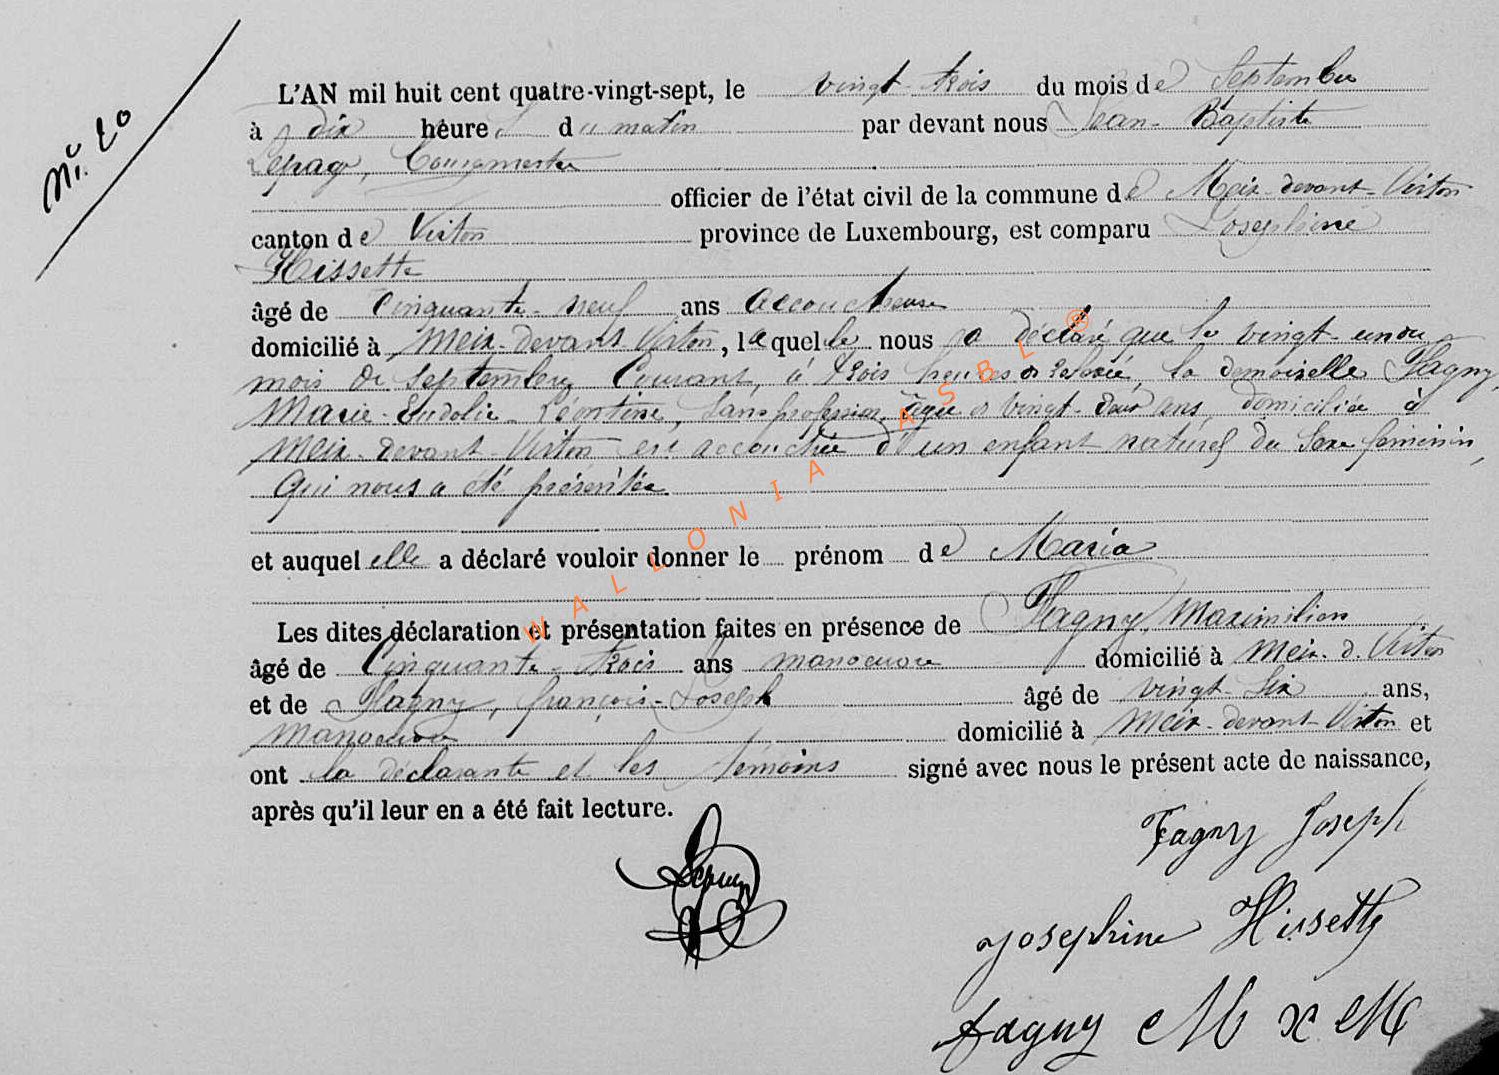 N° 20
L'AN mil huit cent quatre-vingt-sept, le vingt-trois du mois de Septembre
à dix heures du matin par devant nous Jean-Baptiste
Lepage, bourgmestre
officier de l'état civil de la commune de Meix-devant-Virton
canton de Virton province de Luxembourg, est comparu Joséphine
Hissette
âgé de cinquante-neuf ans accoucheuse
domicilié à Meix-devant Virton, laquelle nous a déclaré que le vingt-un du
mois de Septembre Courant, à trois heures de relevée, la demoiselle Fagny,
Marie-Eudolie Léontine, sans profession, âgée de vingt-deux ans, domiciliée à
Meix-devant-Virton est accouchée d'un enfant naturel du sexe féminin,
Qui nous a été présentée
et auquel elle a déclaré vouloir donner le prénom de Maria
Les dites déclaration et présentation faites en présence de Fagny, Maximilien
âgé de Cinquante-trois ans manoeuvre domicilié à Meix-d.Virton
et de Fagny, françois-Joseph âgé de vingt-six ans,
manoeuvre domicilié à Meix-devant Virton et
ont la déclarante et les témoins signé avec nous le présent acte de naissance,
après qu'il leur en a été fait lecture.
Fagny Joseph
Lepage
Josephine Hissette
fagny M x M
WALLONIA ASBL ®